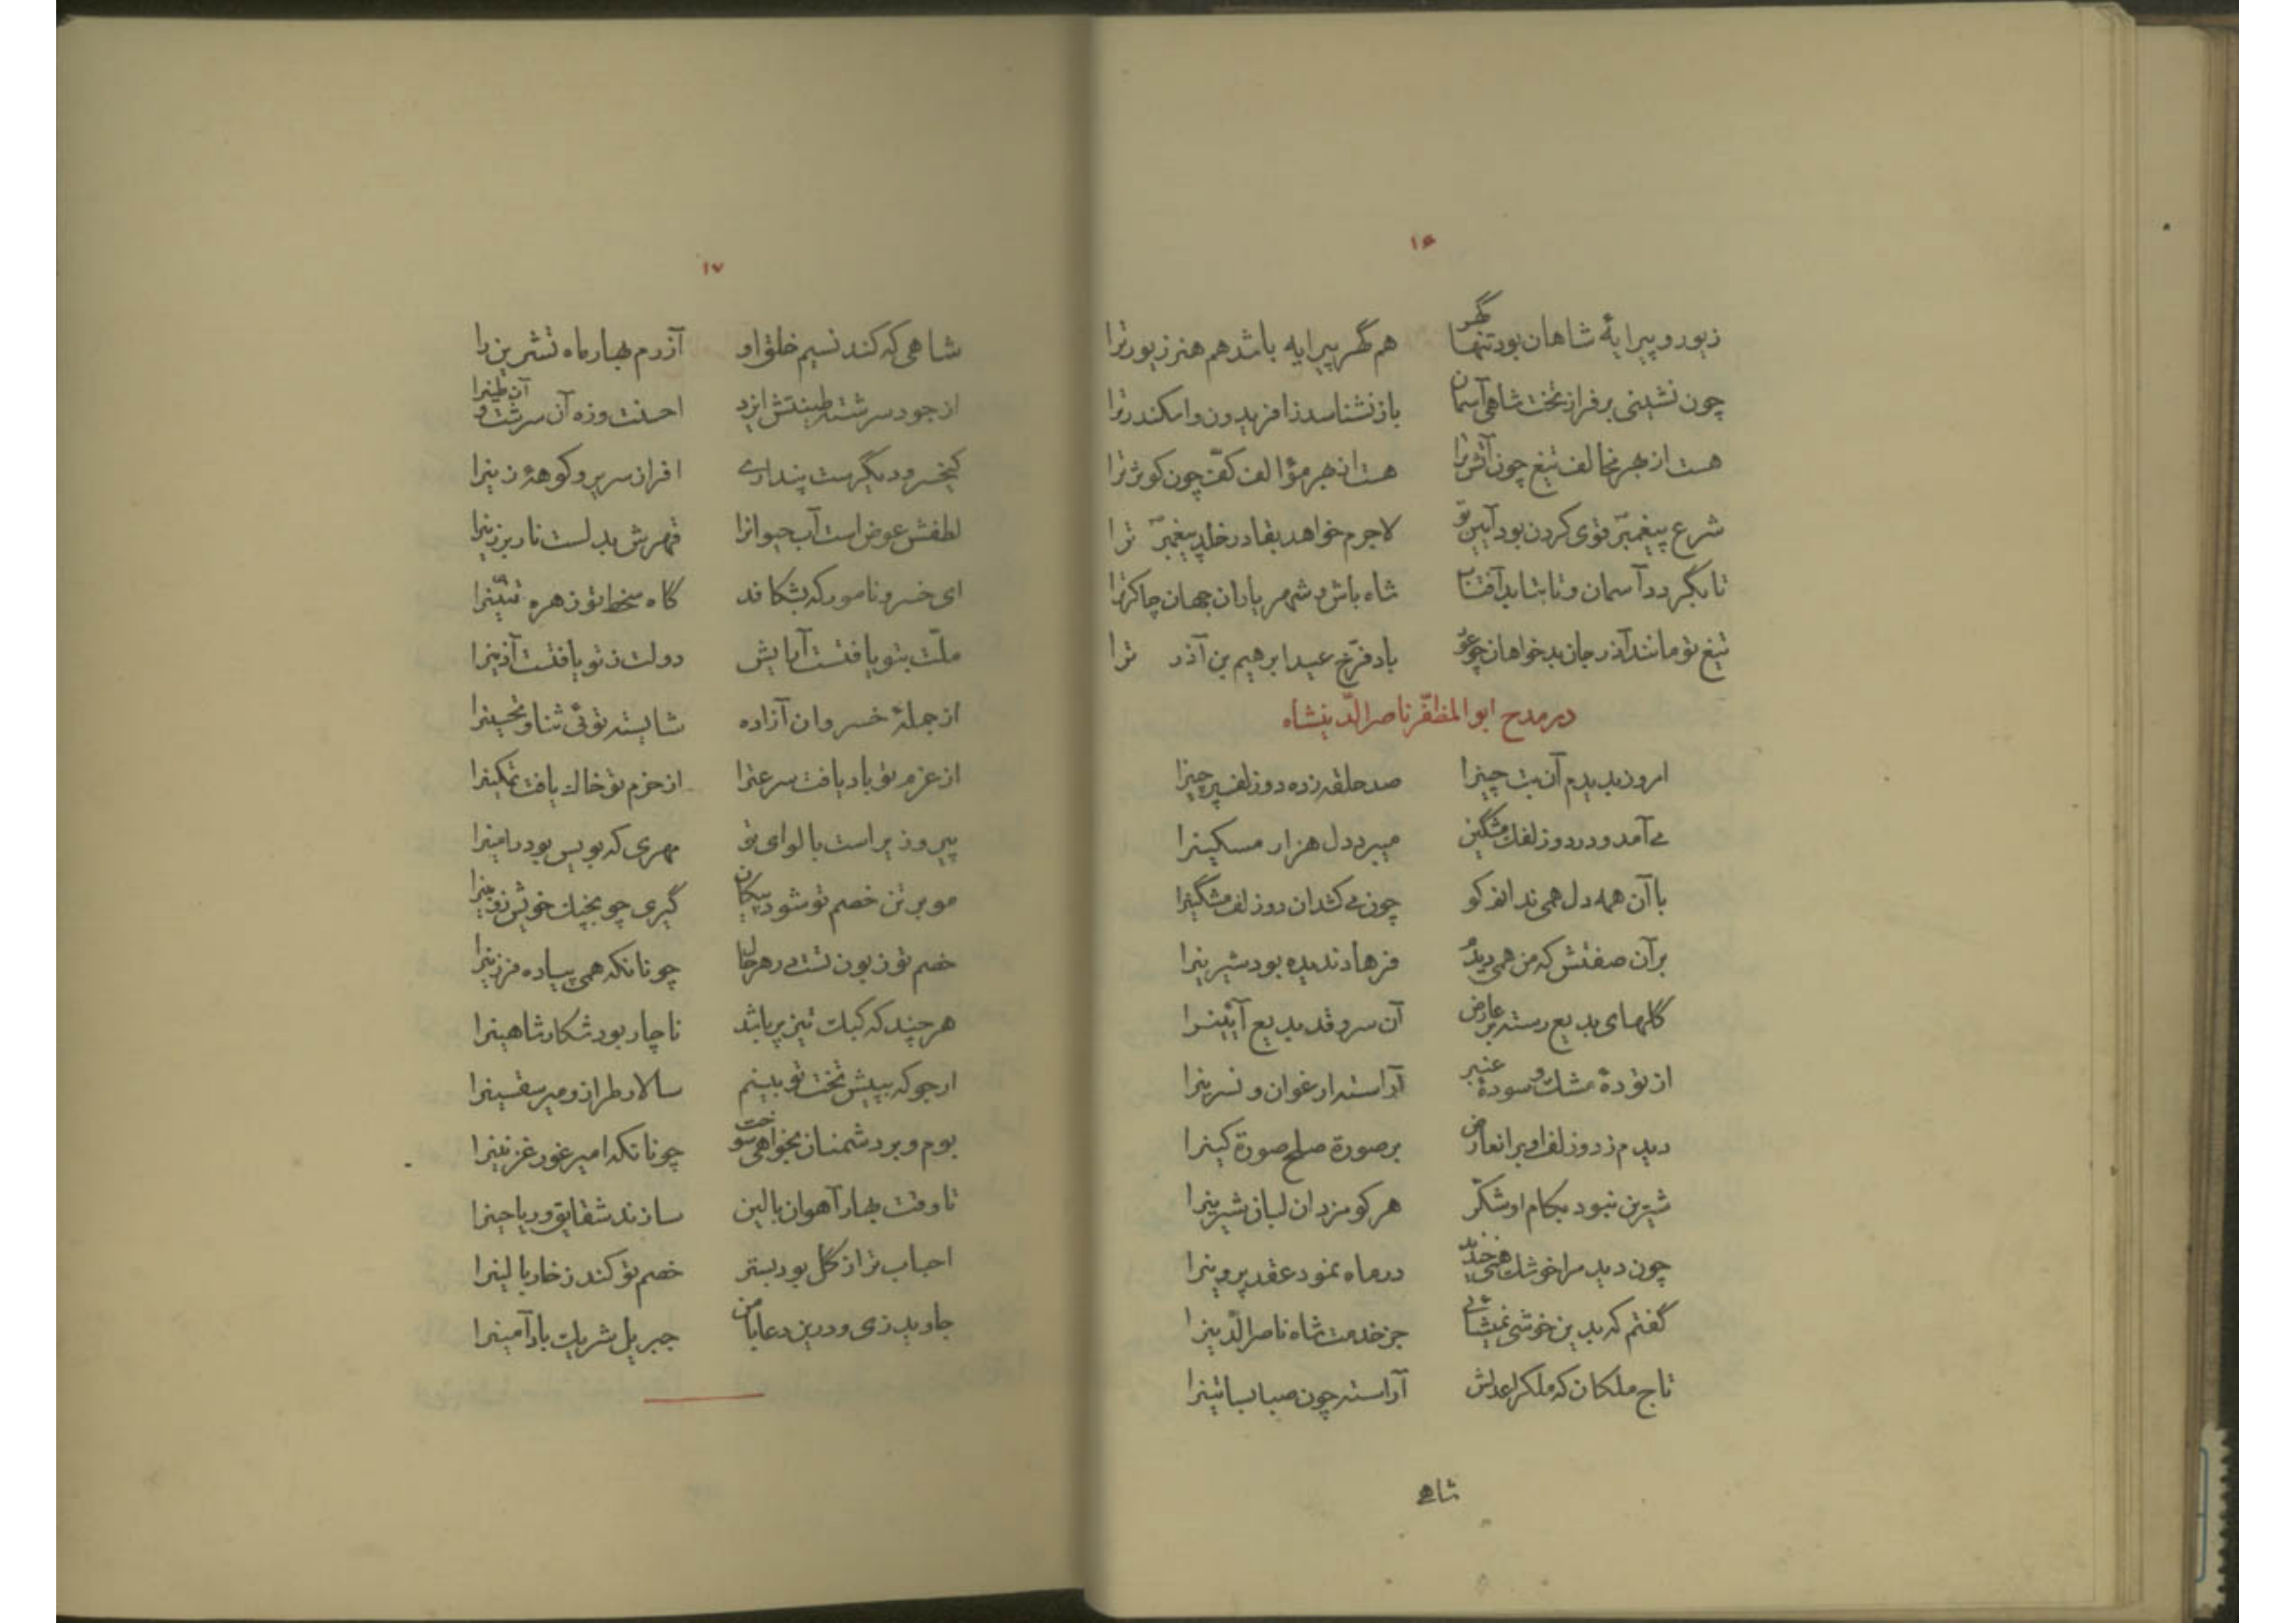 ۱۶
زیور و پیرایهٔ شاهان بود تنها گهر هم گهر پیرایه باشد هم هنر زیور ترا
چون نشینی بر فراز تخت شاهی آسمان باز نشناسد ز افریدون و اسکندر ترا
هست از بهر مخالف تیغ چون آتش ترا هست از بهر مؤالف کفّ چون کوثر ترا
شرع پیغمبر قوی کردن بود آیین تو لاجرم خواهد بقا در خلد پیغمبر ترا
تا بگردد آسمان و تا بتابد آفتاب شاه باش و شهریاران جهان چاکر ترا
تیغ تو مانند آذر جان بدخواهان چو عود باد فرّخ عید ابرهیم بن آذر ترا
در مدح ابو المظفّر ناصر الدّینشاه
امروز بدیدم آن بت چینرا صد حلقه زده دو زلف پرچینرا
می آمد و در دو زلفك مشگین میبرد دل هزار مسکینرا
با آن همه دل همی ندانم کو چون می کشد آن دو زلف مشگینرا
بر آن صفتش که من همی دیدم فرهاد ندیده بود شیرینرا
گلهای بدیع رسته بر عارض آن سرو قد بدیع آیینرا
از تودهٔ مشك و سودهٔ عنبر آراسته ارغوان و نسرینرا
دیدم ز دو زلف او بر انعارض بر صورة صلح صورة کینرا
شیرین نبود بکام او شکّر هر کو مزد ان لبان شیرینرا
چون دید مرا خوشك همی خندید در ماه نمود عقد پروینرا
گفتم که بدین خوشی نمیشائی جز خدمت شاه ناصر الدّینرا
تاج ملکان که ملکرا عدلش آراسته چون صبا بساتینرا
شاهی
۱۷
شاهی که کند نسیم خلق او آزرم بهار ماه تشرین را
از جود سرشته طینتش ایزد احسنت وزه آن سرشت و آن طینرا
کیخسرو دیگرست پنداری افراز سریر و کوههٔ زینرا
لطفش عوض است آب حیوانرا قهرش بدلست نار برزینرا
ای خسرو نامور که بشکافد گاه سخط تو زهره تنّینرا
ملّت بتو یافتست آرایش دولت ز تو یافتست آذینرا
از جملهٔ خسروان آزاده شایسته توئی ثنا و تحسینرا
از عزم تو باد یافت سرعترا از حزم تو خاك یافت تمکینرا
پیروز یر است با لوای تو مهری که بویس بود رامینرا
مو بر تن خصم تو شود پیکان گیری چو بچنك خویش زوبینرا
خصم تو زبون تست در هر حال چونانکه همی پیاده فرزینرا
هر چند که کبك تیز پر باشد ناچار بود شکار شاهینرا
ارجو که بپیش تخت تو بینم سالار طراز و میر سقسینرا
بوم و بر دشمنان بخواهی سوخت چونانکه امیر غور غزنینرا
تا وقت بهار آهوان بالین سازند شقایق و ریاحینرا
احباب ترا ز گل بود بستر خصم تو کند ز خار بالینرا
جاوید زی و درین دعا با من جبریل شریك باد آمینرا